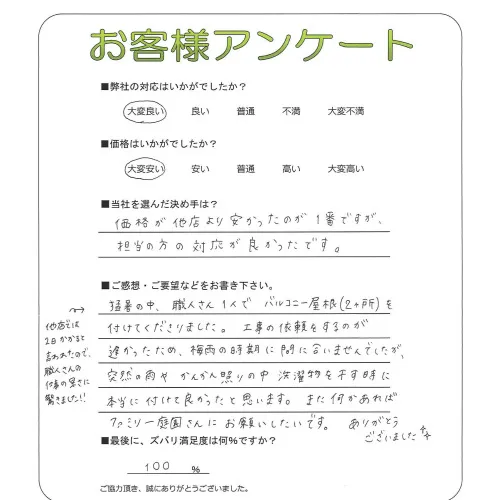 お客様アンケート
■弊社の対応はいかがでしたか？
大変良い 良い 普通 不満 大変不満
■価格はいかがでしたか？
大変安い 安い 普通 高い 大変高い
■当社を選んだ決め手は？
価格が他店より安かったのが1番ですが、
担当の方の対応が良かったです。
■ご感想・ご要望などをお書き下さい。
猛暑の中、職人さん1人で バルコニー屋根(2ヶ所)を
付けてくださりました。 工事の依頼をするのが
遅かったため、梅雨の時期に間に合いませんでしたが、
突然の雨や かんかん照りの中 洗濯物を干す時に
本当に付けて良かったと思います。 また何かあれば
ファミリー庭園さんにお願いしたいです。 ありがとう
ございました
他店では
2日かかると
言われたので、
職人さんの
仕事の早さに
驚きました!!
■最後に、ズバリ満足度は何％ですか？
100 ％
ご協力頂き、誠にありがとうございました。